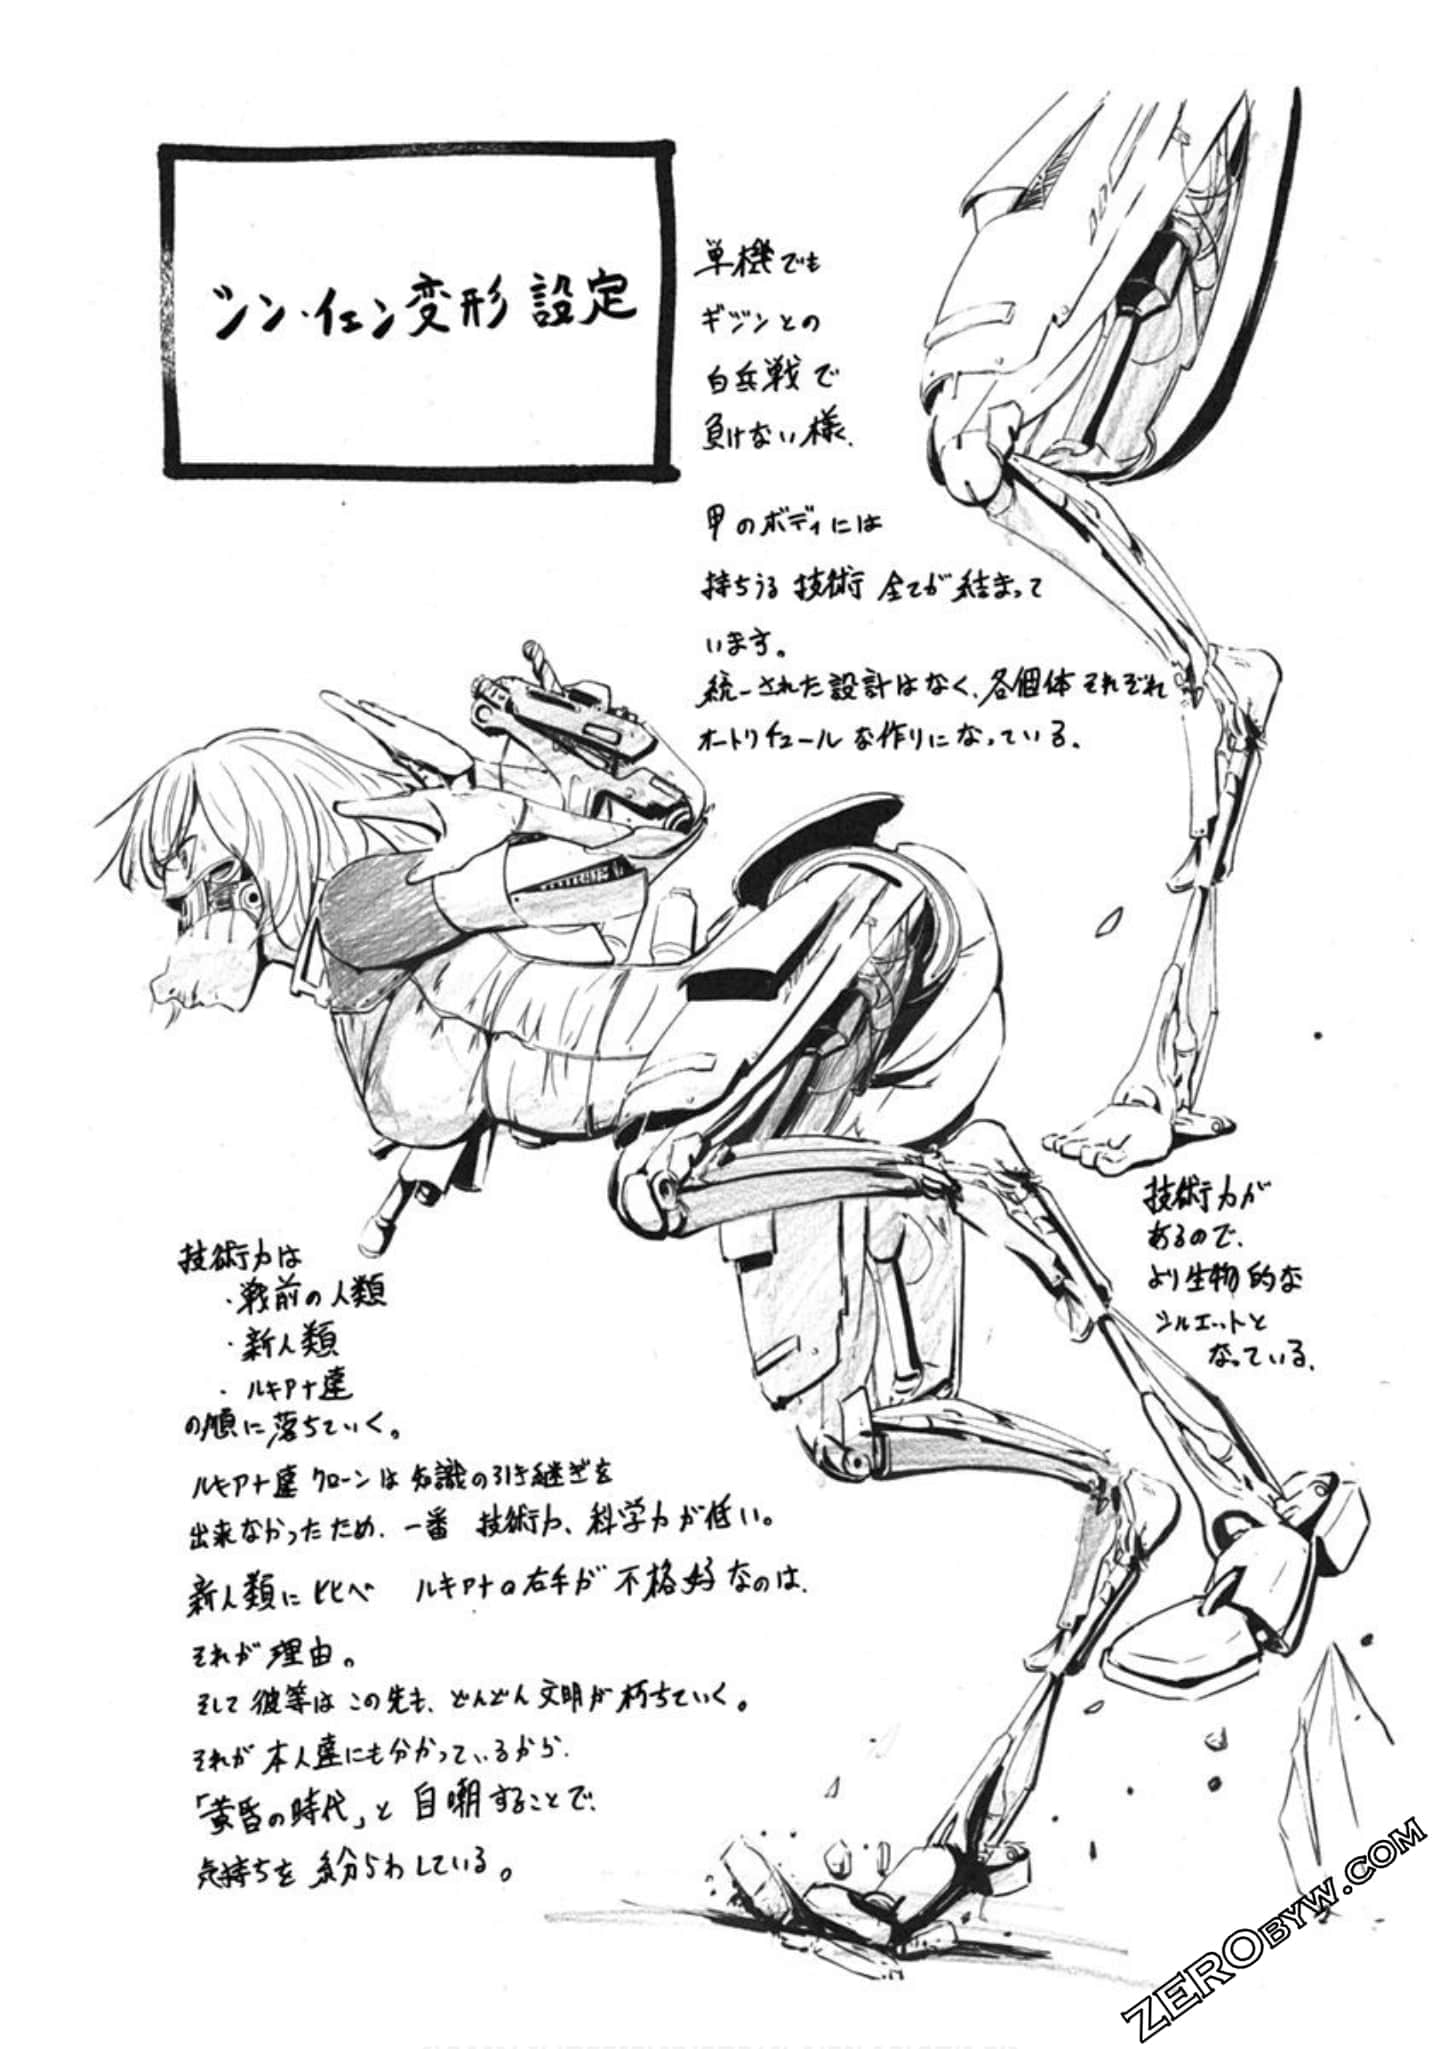 シン・イェン変形設定
単機でも
ギジンとの
白兵戦で
負けない様、
甲のボディには
持ちうる技術全てが結まって
います。
統一された設計はなく、各個体それぞれ
オートリチュールな作りになっている。
技術力が
あるので、
より生物的な
シルエットと
なっている。
技術力は
・戦前の人類
・新人類
・ルキアナ達
の順に落ちていく。
ルキアナ達クローンは知識の引き継ぎを
出来なかったため、一番技術力、科学力が低い。
新人類に比べ ルキアナの右手が不格好なのは、
それが理由。
そして彼等はこの先も、どんどん文明が朽ちていく。
それが本人達にも分かっているから、
「黄昏の時代」と自嘲することで、
気持ちを紛らわしている。
ZEROBYW.COM